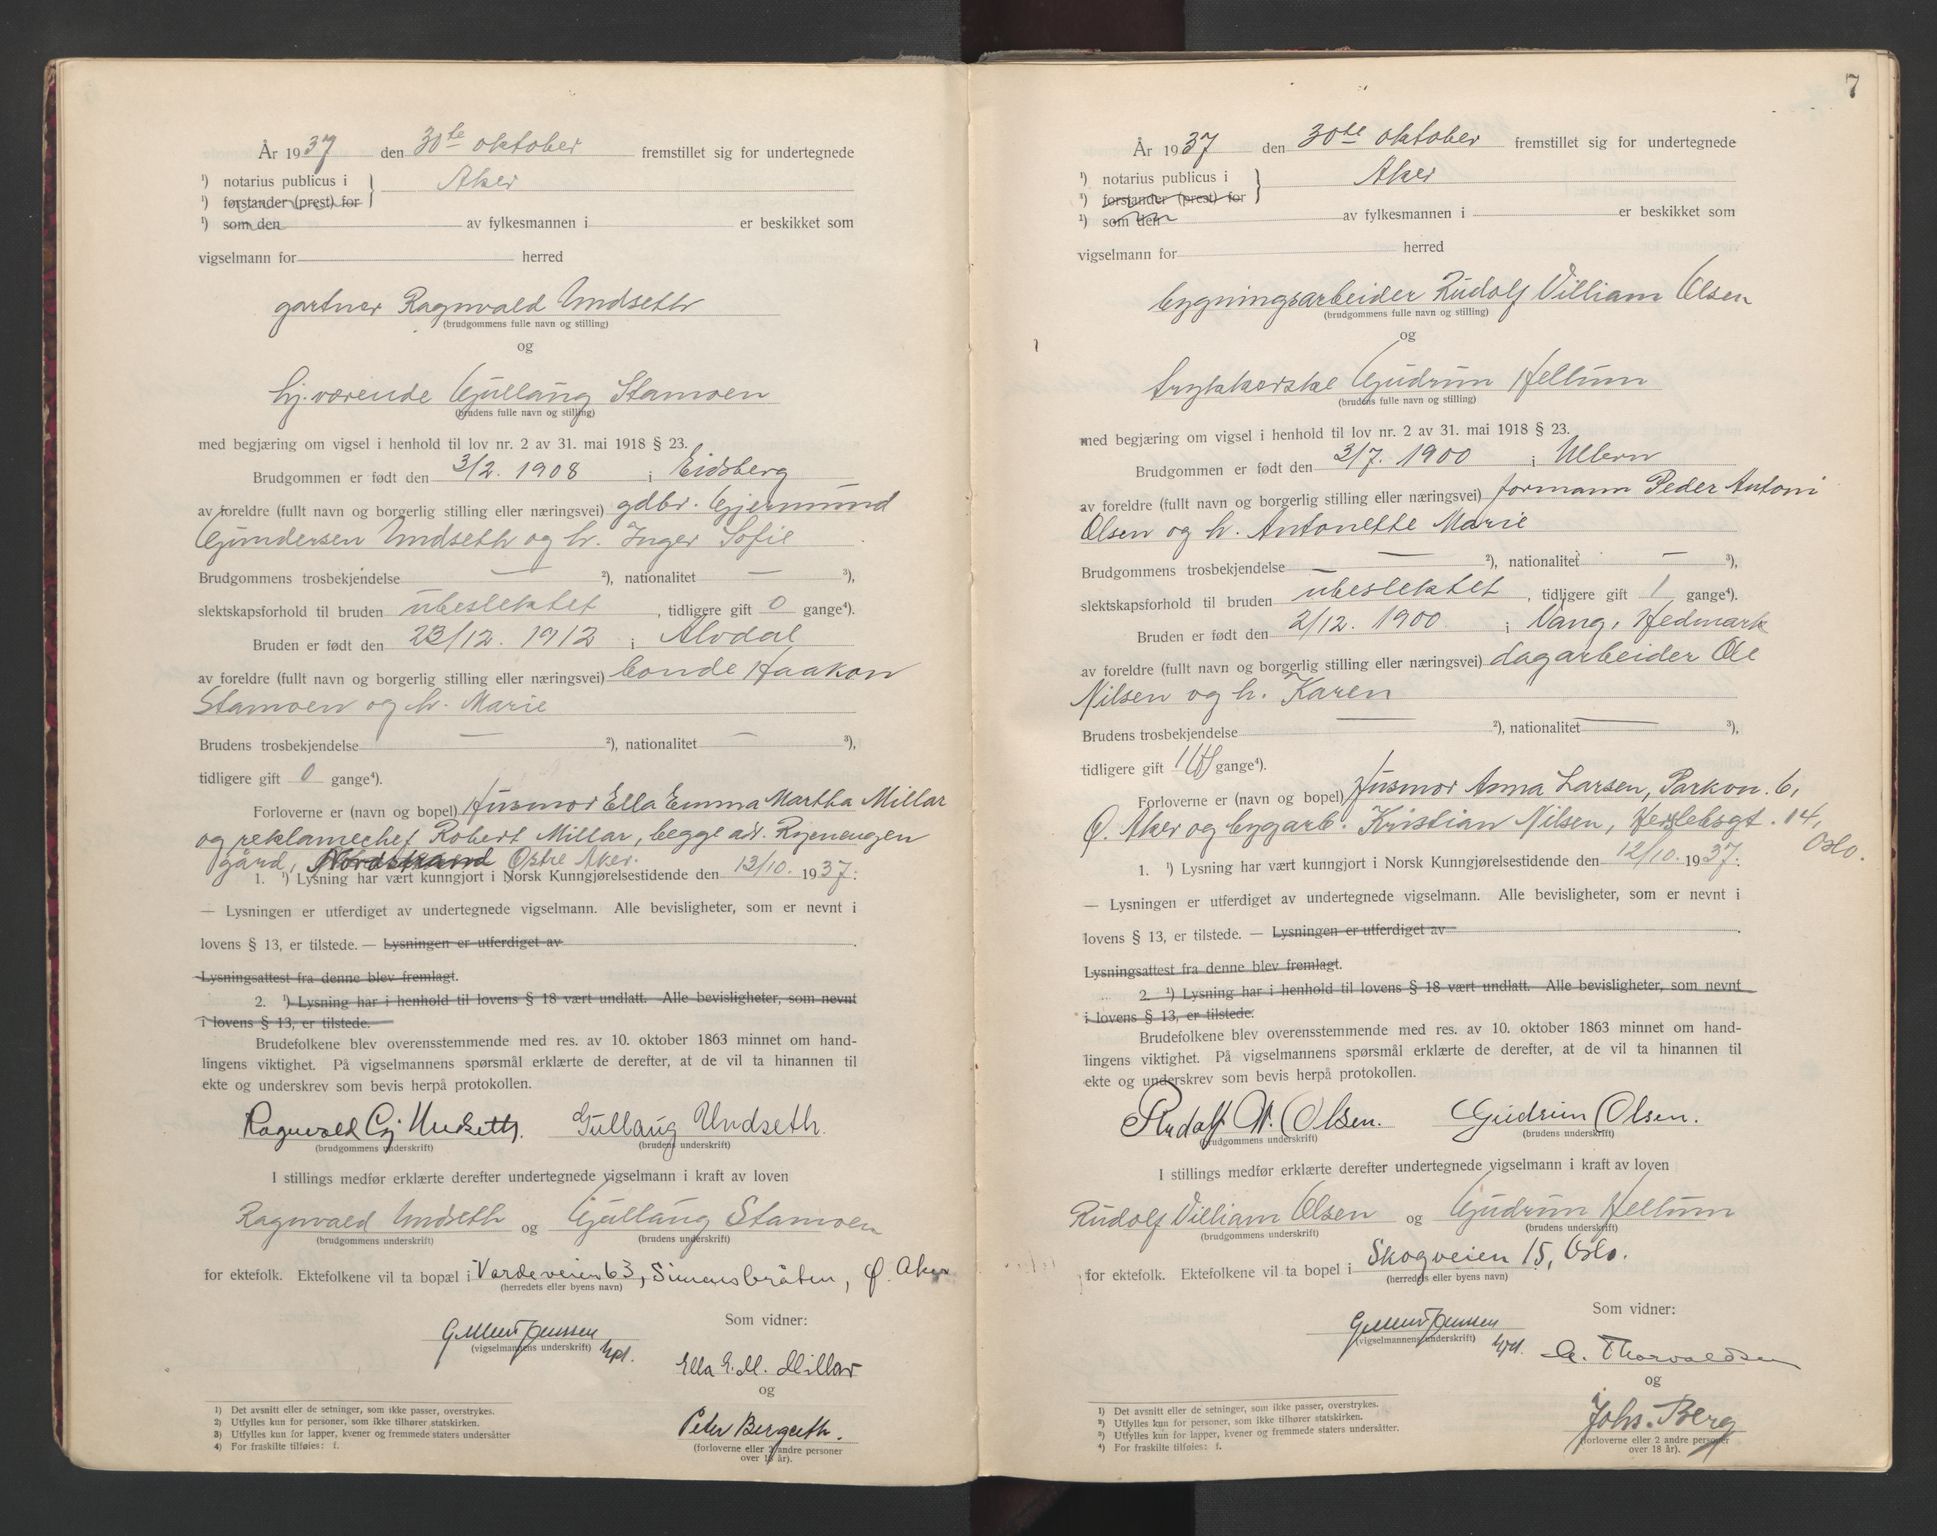 År 1937 den 30te oktober fremstillet sig for undertegnede
¹) notarius publicus i Aker
¹) forstander (prest) for
¹) som den av fylkesmannen i er beskikket som
vigselmann for herred
gartner Ragnvald Undseth
(brudgommens fulle navn og stilling)
og
hj.værende Gullaug Stamoen
(brudens fulle navn og stilling)
med begjæring om vigsel i henhold til lov nr. 2 av 31. mai 1918 § 23.
Brudgommen er født den 3/2. 1908 i Eidsberg
av foreldre (fullt navn og borgerlig stilling eller næringsvei) gdbr. Gjermund
Gundersen Undseth og h. Inger Sofie
Brudgommens trosbekjendelse — ²), nationalitet — ³),
slektskapsforhold til bruden ubeslektet, tidligere gift 0 gange⁴).
Bruden er født den 23/12. 1912 i Alvdal
av foreldre (fullt navn og borgerlig stilling eller næringsvei) bonde Haakon
Stamoen og h. Marie
Brudens trosbekjendelse — ²), nationalitet — ³),
tidligere gift 0 gange⁴).
Forloverne er (navn og bopel) Husmor Ella Emma Martha Millar
og reklamechef Robert Millar, begge adr. Ryenengen
gård, Nordstrand Østre Aker.
1. ¹) Lysning har vært kunngjort i Norsk Kunngjørelsestidende den 12/10. 1937:
— Lysningen er utferdiget av undertegnede vigselmann. Alle bevisligheter, som er nevnt i
lovens § 13, er tilstede. — Lysningen er utferdiget av
Lysningsattest fra denne blev fremlagt.
2. ¹) Lysning har i henhold til lovens § 18 vært undlatt. Alle bevisligheter, som nevnt
i lovens § 13, er tilstede.
Brudefolkene blev overensstemmende med res. av 10. oktober 1863 minnet om hand-
lingens viktighet. På vigselmannens spørsmål erklærte de derefter, at de vil ta hinannen til
ekte og underskrev som bevis herpå protokollen.
Ragnvald Gj Undseth. Gullaug Undseth.
(brudgommens underskrift) (brudens underskrift)
I stillings medfør erklærte derefter undertegnede vigselmann i kraft av loven
Ragnvald Undseth og Gullaug Stamoen
(brudgommens underskrift) (brudens underskrift)
for ektefolk. Ektefolkene vil ta bopæl i Vardeveien 63, Simensbråten, Ø. Aker
(herredets eller byens navn)
Som vidner:
(vigselmannens underskrift)
Ella E. M. Millar
og
Peter Bergseth.
(forloverne eller 2 andre personer
over 18 år).
1) Det avsnitt eller de setninger, som ikke passer, overstrykes.
2) Utfylles kun for personer, som ikke tilhører statskirken.
3) Utfylles kun for lapper, kvener og fremmede staters undersåtter
4) For fraskilte tilføies: f.
7
År 1937 den 30te oktober fremstillet sig for undertegnede
¹) notarius publicus i Aker
¹) forstander (prest) for
¹) som den av fylkesmannen i er beskikket som
vigselmann for herred
bygningsarbeider Rudolf Villiam Olsen
(brudgommens fulle navn og stilling)
og
trykkerske Gudrun Hellum
(brudens fulle navn og stilling)
med begjæring om vigsel i henhold til lov nr. 2 av 31. mai 1918 § 23.
Brudgommen er født den 3/7. 1900 i Ullern
av foreldre (fullt navn og borgerlig stilling eller næringsvei) formann Peder Antoni
Olsen og h. Antonette Marie
Brudgommens trosbekjendelse — ²), nationalitet — ³),
slektskapsforhold til bruden ubeslektet, tidligere gift 1 gange⁴).
Bruden er født den 2/12. 1900 i Vang, Hedmark
av foreldre (fullt navn og borgerlig stilling eller næringsvei) dagarbeider Ole
Nilsen og h. Karen
Brudens trosbekjendelse — ²), nationalitet — ³),
tidligere gift 1(f) gange⁴).
Forloverne er (navn og bopel) Husmor Anna Larsen, Parkvn. 6,
Ø. Aker og bygarb. Kristian Nilsen, Herslebsgt. 14,
Oslo.
1. ¹) Lysning har vært kunngjort i Norsk Kunngjørelsestidende den 12/10. 1937:
— Lysningen er utferdiget av undertegnede vigselmann. Alle bevisligheter, som er nevnt i
lovens § 13, er tilstede. — Lysningen er utferdiget av
Lysningsattest fra denne blev fremlagt.
2. ¹) Lysning har i henhold til lovens § 18 vært undlatt. Alle bevisligheter, som nevnt
i lovens § 13, er tilstede.
Brudefolkene blev overensstemmende med res. av 10. oktober 1863 minnet om hand-
lingens viktighet. På vigselmannens spørsmål erklærte de derefter, at de vil ta hinannen til
ekte og underskrev som bevis herpå protokollen.
Rudolf W. Olsen. Gudrun Olsen.
(brudgommens underskrift) (brudens underskrift)
I stillings medfør erklærte derefter undertegnede vigselmann i kraft av loven
Rudolf Villiam Olsen og Gudrun Hellum
(brudgommens underskrift) (brudens underskrift)
for ektefolk. Ektefolkene vil ta bopel i Skogveien 15, Oslo.
(herredets eller byens navn)
Som vidner:
(vigselmannens underskrift)
A. Thorvaldsen
og
Johs. Berg
(forloverne eller 2 andre personer
over 18 år).
1) Det avsnitt eller de setninger, som ikke passer, overstrykes.
2) Utfylles kun for personer, som ikke tilhører statskirken.
3) Utfylles kun for lapper, kvener og fremmede staters undersåtter.
4) For fraskilte tilføies: f.